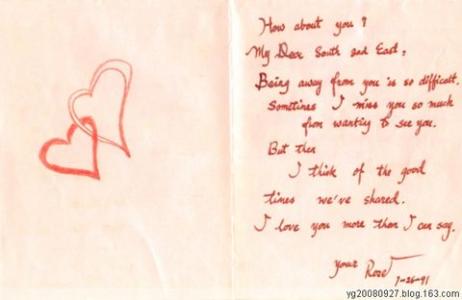 How about you?
My Dear South and East,
Being away from you is so difficult.
Sometimes I miss you so much
from wanting to see you.
But then
I think of the good
times we've shared.
I love you more than I can say.
your Rose
7-26-91
yg20080927.blog.163.com